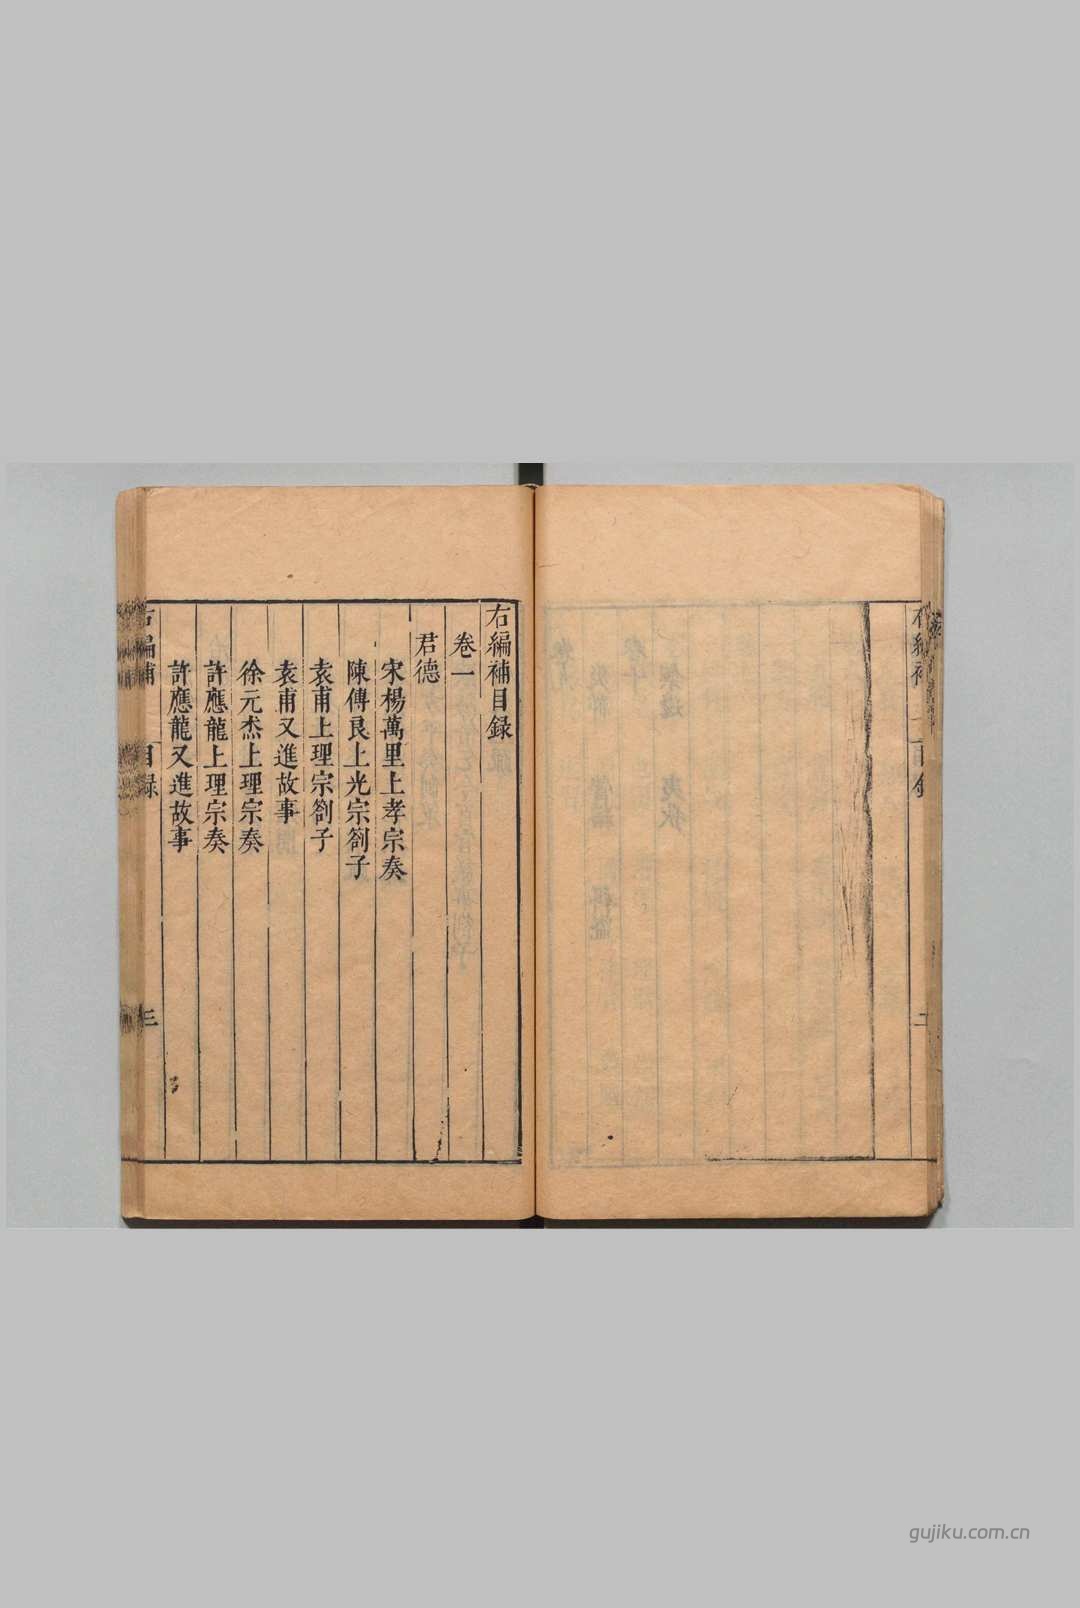 右編補目録
卷一
君德
宋楊萬里上孝宗奏
陳傅良上光宗劄子
袁甫上理宗劄子
袁甫又進故事
徐元杰上理宗奏
許應龍上理宗奏
許應龍又進故事
右編補
目録
三
gujiku.com.cn